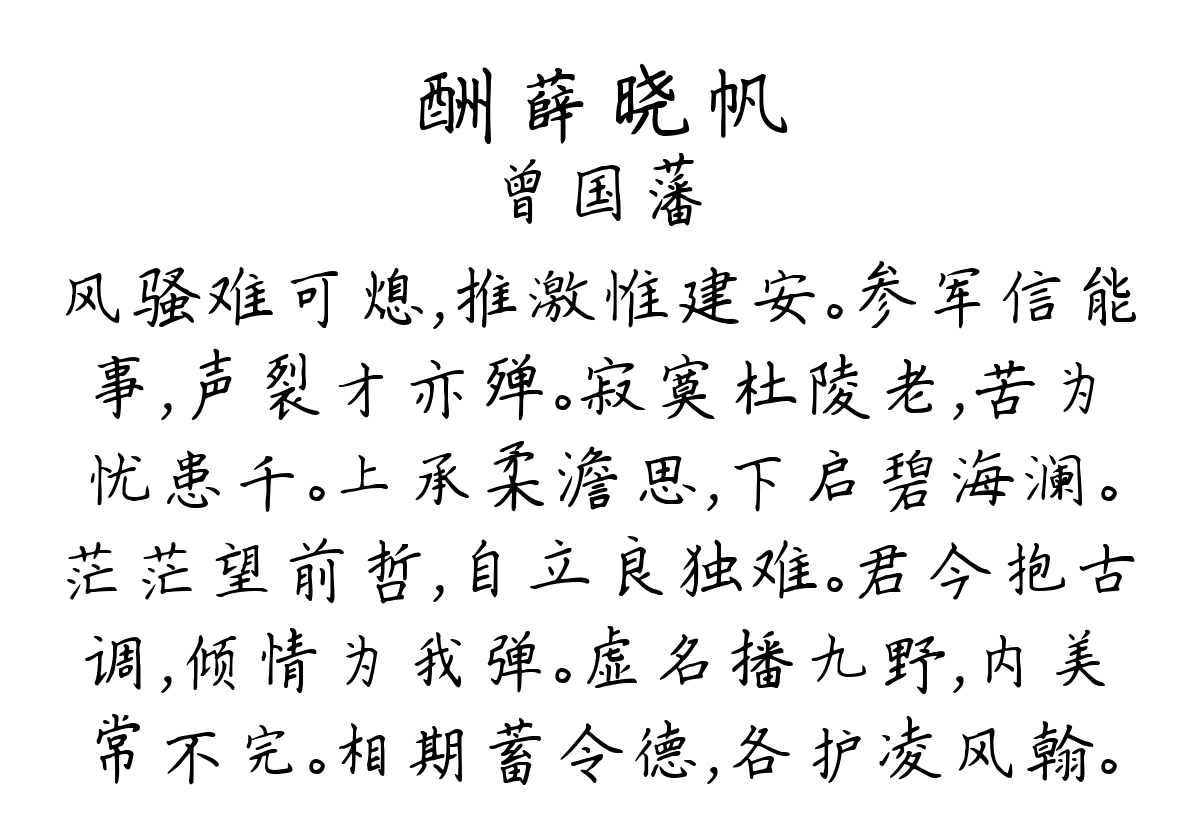 酬薛晓帆
曾国藩
风骚难可熄,推激惟建安。参军信能
事,声裂才亦殚。寂寞杜陵老,苦为
忧患千。上承柔澹思,下启碧海澜。
茫茫望前哲,自立良独难。君今抱古
调,倾情为我弹。虚名播九野,内美
常不完。相期蓄令德,各护凌风翰。